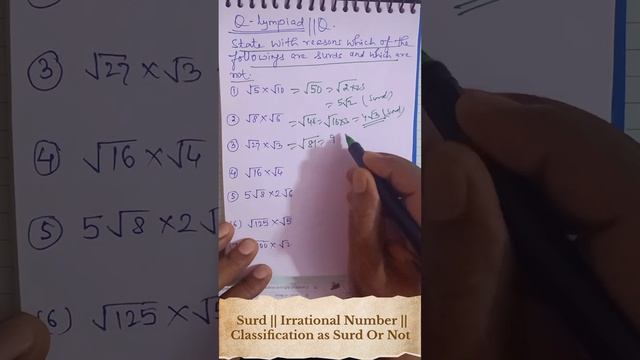 Q-lympiad || Q.
State with reasons which of the
followings are surds and which are
not:
① √5 × √10 = √50 = √2×25
= 5√2 (Surd)
② √8 × √6 = √48 = √16×3 = 4√3 (Surd)
③ √27 × √3 = √81 = 9
④ √16 × √4
⑤ 5√8 × 2√6
(6) √125 × √5
00 × √
③ √27 × √3
④ √16 × √4
⑤ 5√8 × 2√
(6) √125 × √5
Surd || Irrational Number ||
Classification as Surd Or Not